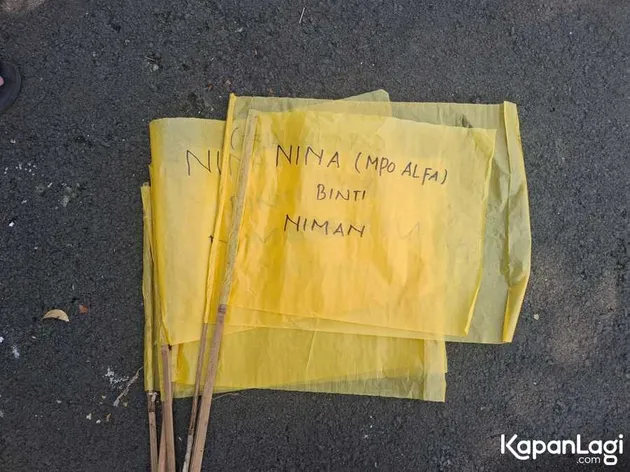 NIN
NINA (MPO ALFA)
BINTI
NIMAN
KapanLagi
.com